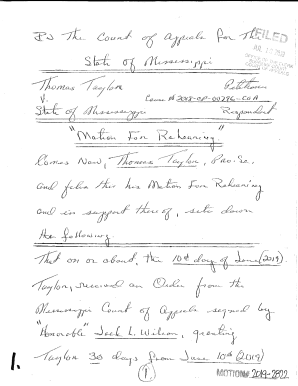 In The Court of Appeals For The
State of Mississippi
FILED
Thomas Taylor Petitioner
V. Cause # 2018-CP-00796-COA
State of Mississippi Respondent
"Motion For Rehearing"
Comes Now, Thomas Taylor, Pro-Se.
and files this his Motion For Rehearing
and in support thereof, sets down
the following.
That on or about, the 10th day of June (2019)
Taylor, received an Order from the
Mississippi Court of Appeals signed by
"Honorable" Jack L. Wilson, granting
1. Taylor 30 days from June 10th (2019)
1
MOTION# 2019-2822